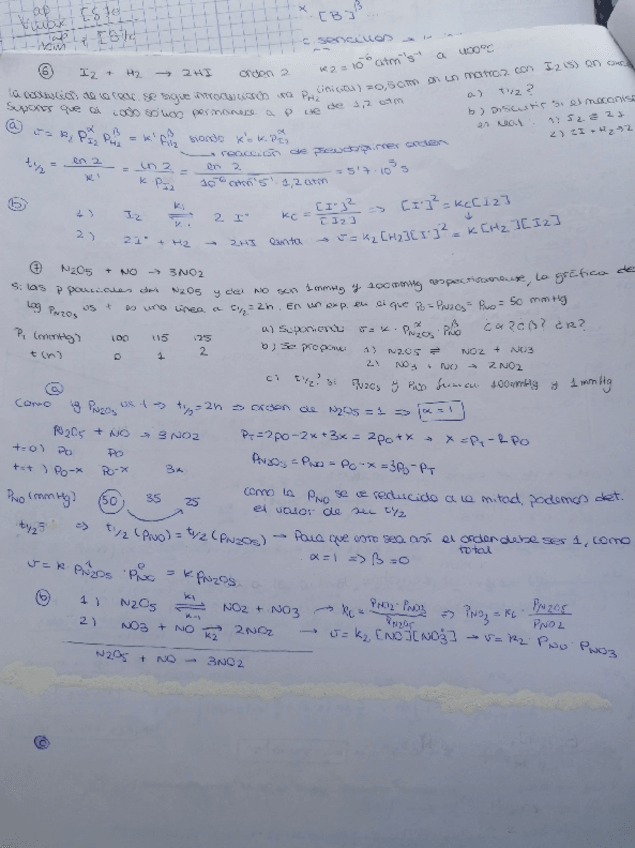 [B]^β
c sencillos
⑥ I2 + H2 → 2HI orden 2 K2 = 10^-6 atm^-1 s^-1 a 400ºC
la evolución de la reac. se sigue introduciendo una P_H2 (inicial) = 0,5 atm en un matraz con I2(s) en
Suponer que el yodo sólido permanece a p de 1,2 atm
a) t1/2?
b) Discutir si el mecanismo
es real. 1) I2 ⇌ 2I
2) 2I + H2 → 2
ⓐ v = k2 P_I2^α P_H2^β = k' P_H2^β siendo k' = k·P_I2^α
→ reacción de pseudoprimer orden
t1/2 = ln 2 / k' = ln 2 / k P_I2 = ln 2 / 10^-6 atm^-1 s^-1 · 1,2 atm = 5'7·10^5 s
ⓑ 1) I2 ⇌ 2 I· k1 k-1 Kc = [I·]^2 / [I2] ⇒ [I·]^2 = Kc [I2]
2) 2I· + H2 → 2HI lenta → v = k2 [H2][I·]^2 = k [H2][I2]
⑦ N2O5 + NO → 3NO2
Si las p parciales del N2O5 y del NO son 1mmHg y 100mmHg respectivamente, la gráfica de
log P_N2O5 vs t es una línea a t1/2 = 2h. En un exp. en el que P0 = P_N2O5 = P_NO = 50 mmHg
P_T (mmHg) 100 115 125
t (h) 0 1 2
a) Suponiendo v = k · P_N2O5^α · P_NO^β ¿α? ¿β? ¿k?
b) Se propone 1) N2O5 ⇌ NO2 + NO3
2) NO3 + NO → 2NO2
c) t1/2? si P_N2O5 y P_NO 100mmHg y 1mmHg
ⓐ
Como lg P_N2O5 vs t → t1/2 = 2h ⇒ orden de N2O5 = 1 ⇒ α = 1
N2O5 + NO → 3NO2
P_T = 2p0 - 2x + 3x = 2p0 + x → x = P_T - 2P0
t=0) P0 P0
t=t) P0-x P0-x 3x
P_N2O5 = P_NO = P0 - x = 3P0 - P_T
P_NO (mmHg) 50 35 25
como la P_NO se ve reducido a la mitad, podemos det.
el valor de su t1/2
t1/2 = ⇒ t1/2 (P_NO) = t1/2 (P_N2O5) → Para que esto sea así el orden total debe ser 1, como
α = 1 ⇒ β = 0
v = k P_N2O5^1 · P_NO^0 = k P_N2O5
ⓑ 1) N2O5 ⇌ NO2 + NO3 k1 k-1 → kc = P_NO2 · P_NO3 / P_N2O5 ⇒ P_NO3 = kc · P_N2O5 / P_NO2
2) NO3 + NO → 2NO2 k2 → v = k2 [NO][NO3] → v = k2 P_NO · P_NO3
N2O5 + NO → 3NO2
ⓒ